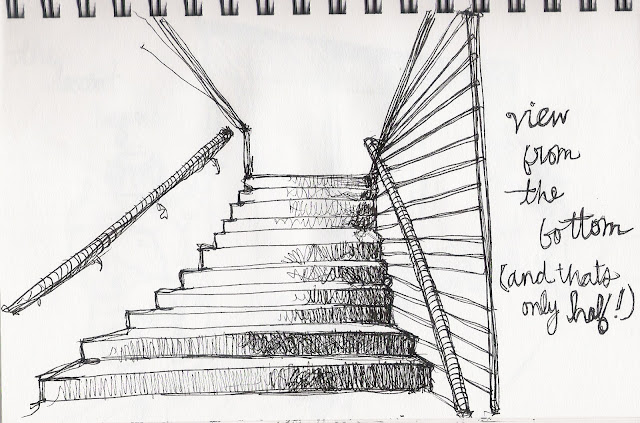 view
from
the
bottom
(and thats
only half!)